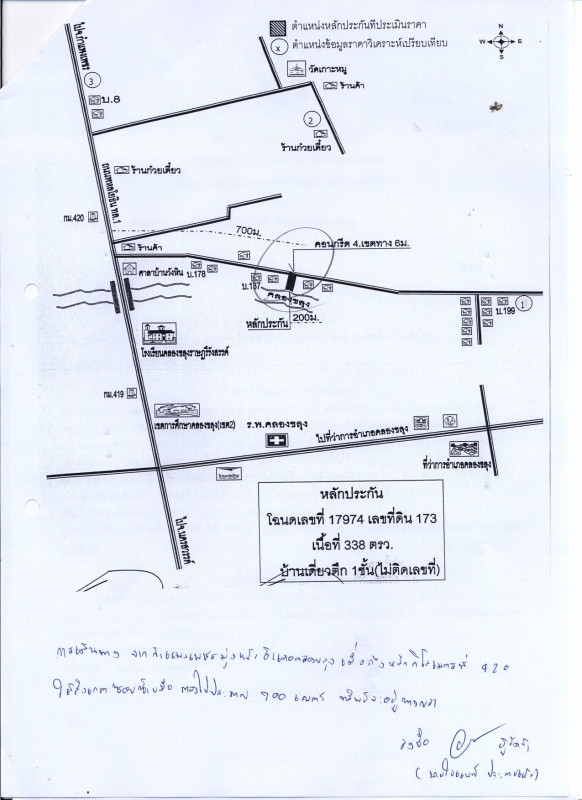 ตำแหน่งหลักประกันที่ประเมินราคา
x ตำแหน่งข้อมูลราคาวิเคราะห์เปรียบเทียบ
N
W E
S
ไปจ.กำแพงเพชร
3
บ.8
วัดเกาะหมู
ร้านค้า
2
ร้านก๋วยเตี๋ยว
ร้านก๋วยเตี๋ยว
ถนนพหลโยธิน ทล.1
กม.420
700ม.
คอนกรีต 4.เขตทาง 6ม.
ร้านค้า
ศาลาบ้านวังหิน
บ.178
บ.137
คลองขลุง
200ม.
หลักประกัน
บ.199
1
โรงเรียนคลองขลุงราษฎร์รังสรรค์
กม.419
เขตการศึกษาคลองขลุง(เขต2)
ร.พ.คลองขลุง
ไปที่ว่าการอำเภอคลองขลุง
ที่ว่าการอำเภอคลองขลุง
ไปจ.นครสวรรค์
หลักประกัน
โฉนดเลขที่ 17974 เลขที่ดิน 173
เนื้อที่ 338 ตรว.
บ้านเดี่ยวตึก 1ชั้น(ไม่ติดเลขที่)
การเดินทาง จากกำแพงเพชรมุ่งหน้าอำเภอคลองขลุง เมื่อถึงหลักกิโลเมตรที่ 420
700 เมตร
ลงชื่อ